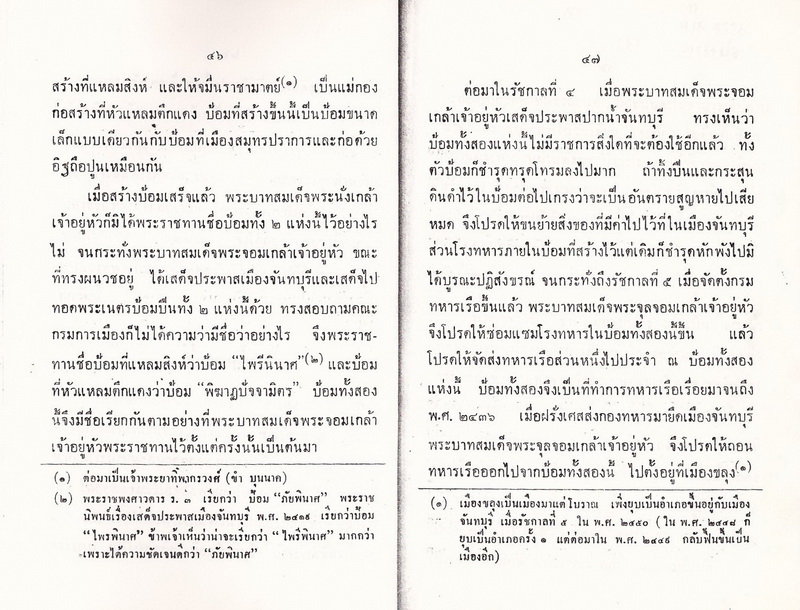 ๔๖
สร้างที่แหลมสิงห์ และให้จมื่นราชามาตย์(๑) เป็นแม่กอง
ก่อสร้างที่หัวแหลมตึกแดง ป้อมที่สร้างขึ้นนี้เป็นป้อมขนาด
เล็กแบบเดียวกันกับป้อมที่เมืองสมุทรปราการและก่อด้วย
อิฐถือปูนเหมือนกัน
เมื่อสร้างป้อมเสร็จแล้ว พระบาทสมเด็จพระนั่งเกล้า
เจ้าอยู่หัวก็มิได้พระราชทานชื่อป้อมทั้ง ๒ แห่งนี้ไว้อย่างไร
ไม่ จนกระทั่งพระบาทสมเด็จพระจอมเกล้าเจ้าอยู่หัว ขณะ
ที่ทรงผนวชอยู่ ได้เสด็จประพาสเมืองจันทบุรีและเสด็จไป
ทอดพระเนตรป้อมปืนทั้ง ๒ แห่งนี้ด้วย ทรงสอบถามคณะ
กรมการเมืองก็ไม่ได้ความว่ามีชื่อว่าอย่างไร จึงพระราช-
ทานชื่อป้อมที่แหลมสิงห์ว่าป้อม “ไพรีพินาศ”(๒) และป้อม
ที่หัวแหลมตึกแดงว่าป้อม “พิฆาฏปัจจามิตร” ป้อมทั้งสอง
นี้จึงมีชื่อเรียกกันตามอย่างที่พระบาทสมเด็จพระจอมเกล้า
เจ้าอยู่หัวพระราชทานไว้ตั้งแต่ครั้งนั้นเป็นต้นมา
(๑) ต่อมาเป็นเจ้าพระยาทิพากรวงศ์ (ขำ บุนนาค)
(๒) พระราชพงศาวดาร ร. ๓ เรียกว่า ป้อม “ภัยพินาศ” พระราช
นิพนธ์เรื่องเสด็จประพาสเมืองจันทบุรี พ.ศ. ๒๔๑๙ เรียกว่าป้อม
“ไพรพินาศ” ข้าพเจ้าเห็นว่าน่าจะเรียกว่า “ไพรีพินาศ” มากกว่า
เพราะได้ความชัดเจนดีกว่า “ภัยพินาศ”
๔๗
ต่อมาในรัชกาลที่ ๔ เมื่อพระบาทสมเด็จพระจอม
เกล้าเจ้าอยู่หัวเสด็จประพาสปากน้ำจันทบุรี ทรงเห็นว่า
ป้อมทั้งสองแห่งนี้ไม่มีราชการสิ่งใดที่จะต้องใช้อีกแล้ว ทั้ง
ตัวป้อมก็ชำรุดทรุดโทรมลงไปมาก ถ้าทิ้งปืนและกระสุน
ดินดำไว้ในป้อมต่อไปเกรงว่าจะเป็นอันตรายสูญหายไปเสีย
หมด จึงโปรดให้ขนย้ายสิ่งของที่มีค่าไปไว้ที่ในเมืองจันทบุรี
ส่วนโรงทหารภายในป้อมที่สร้างไว้แต่เดิมก็ชำรุดหักพังไปมิ
ได้บูรณะปฏิสังขรณ์ จนกระทั่งถึงรัชกาลที่ ๕ เมื่อจัดตั้งกรม
ทหารเรือขึ้นแล้ว พระบาทสมเด็จพระจุลจอมเกล้าเจ้าอยู่หัว
จึงโปรดให้ซ่อมแซมโรงทหารในป้อมทั้งสองนี้ขึ้น แล้ว
โปรดให้จัดส่งทหารเรือส่วนหนึ่งไปประจำ ณ ป้อมทั้งสอง
แห่งนี้ ป้อมทั้งสองจึงเป็นที่ทำการทหารเรือเรื่อยมาจนถึง
พ.ศ. ๒๔๓๖ เมื่อฝรั่งเศสส่งกองทหารมายึดเมืองจันทบุรี
พระบาทสมเด็จพระจุลจอมเกล้าเจ้าอยู่หัว จึงโปรดให้ถอน
ทหารเรือออกไปจากป้อมทั้งสองนี้ ไปตั้งอยู่ที่เมืองขลุง(๑)
(๑) เมืองขลุงเป็นเมืองมาแต่โบราณ เพิ่งยุบเป็นอำเภอขึ้นอยู่กับเมือง
จันทบุรี เมื่อรัชกาลที่ ๕ ใน พ.ศ. ๒๔๕๐ (ใน พ.ศ. ๒๔๔๘ ก็
ยุบเป็นอำเภอครั้ง ๑ แต่ต่อมาใน พ.ศ. ๒๔๔๙ กลับฟื้นขึ้นเป็น
เมืองอีก)